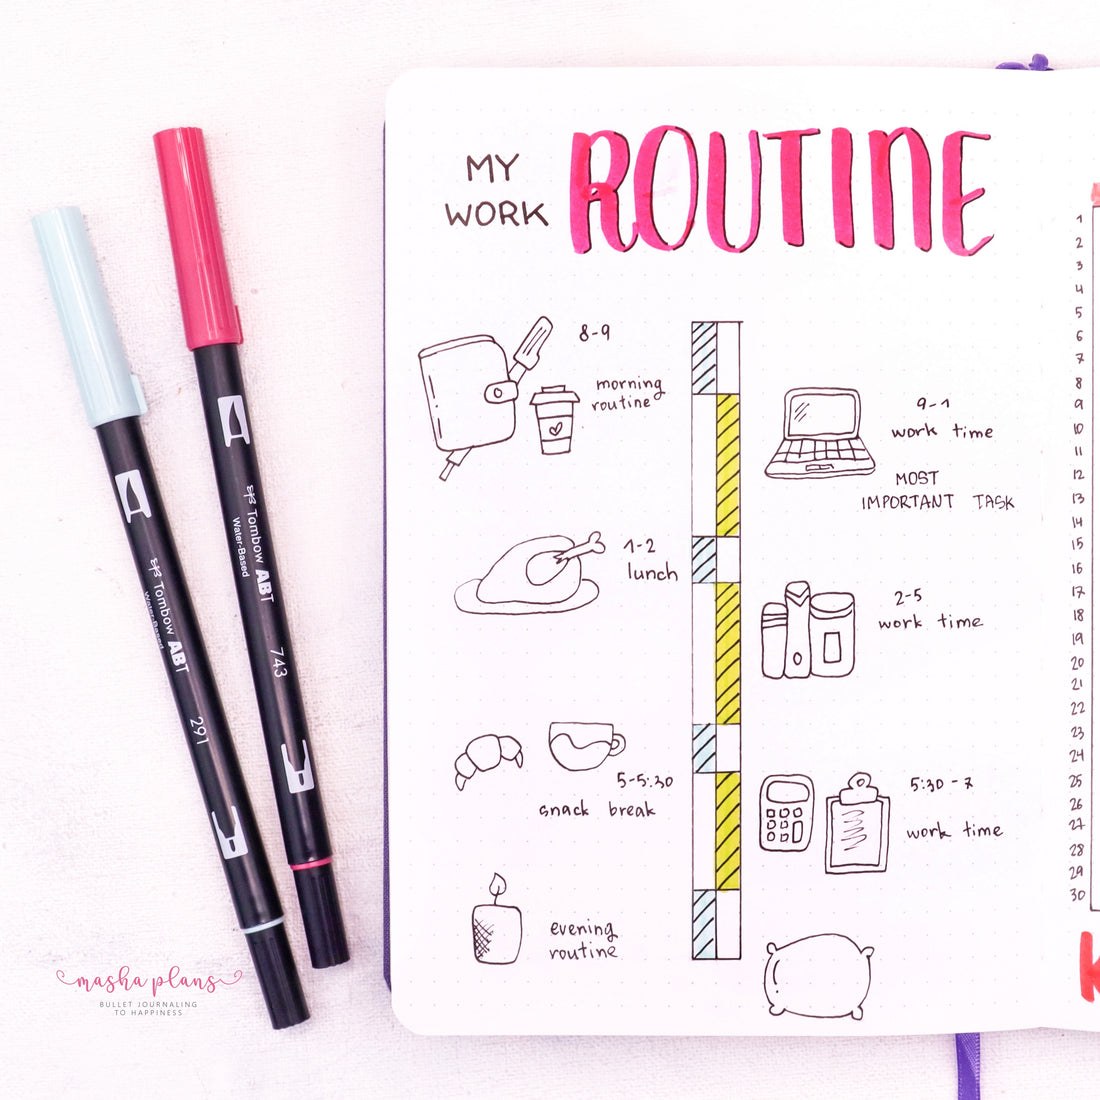 MY
WORK
ROUTINE
8-9
morning
routine
9-1
work time
MOST
IMPORTANT TASK
1-2
lunch
2-5
work time
5-5:30
snack break
5:30-7
work time
evening
routine
1
2
3
4
5
6
7
8
9
10
11
12
13
14
15
16
17
18
19
20
21
22
23
24
25
26
27
28
29
30
K
Tombow ABT
Water-Based
743
Tombow ABT
Water-Based
291
masha plans
BULLET JOURNALING
TO HAPPINESS